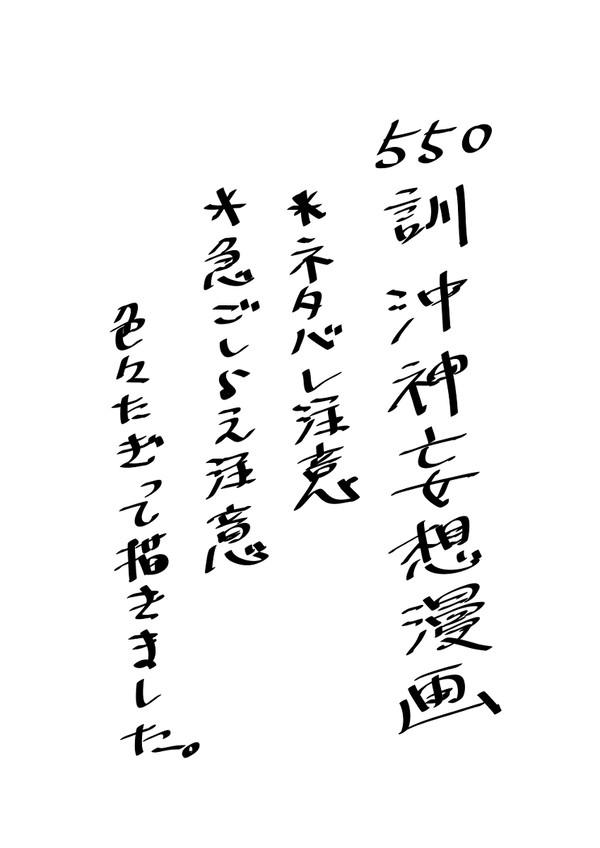 550訓 沖神妄想漫画
*ネタバレ注意
*急ごしらえ注意
色々たぎって描きました。